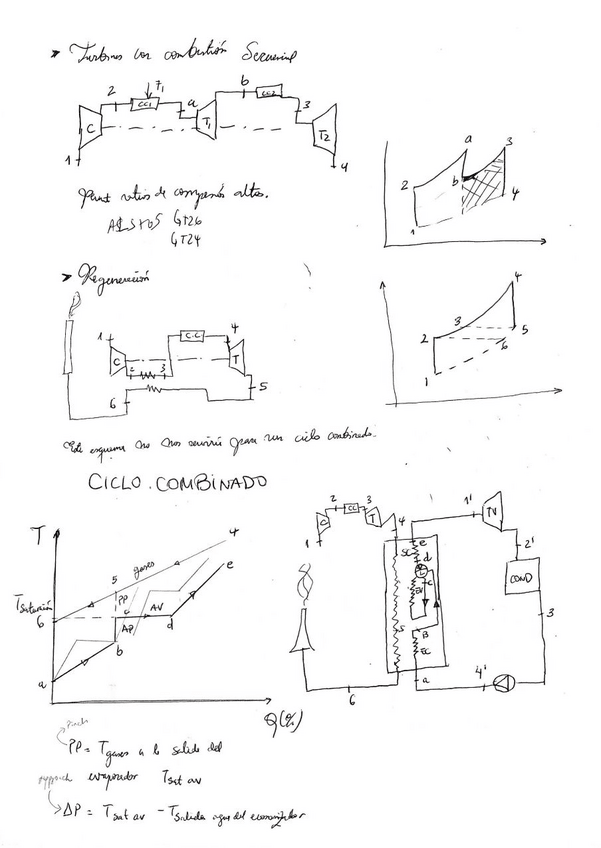 ➤ Turbinas con combustión Secuencial
2 CC1 F1 a T1 b CC2 3
C T2
1 4
Para ratios de compresión altos.
GT26
GT24
a 3
2 b 4
1
➤ Regeneración
1 C.C 4
C 2 3 T
5
6
4
2 3 5
6
1
Este esquema no nos serviría para un ciclo combinado.
CICLO COMBINADO
T
4
gases e
5
T saturación PP
6 c AV
AP d
b
a
Q(%)
2 CC 3
C T 4
1
1' TV
e
SC d
c
EV
5 B
EC
a
2'
COND
3
4'
6
Pinch
PP = T gases a la salida del
approach evaporador T sat av
ΔP = T sat av - T salida agua del economizador